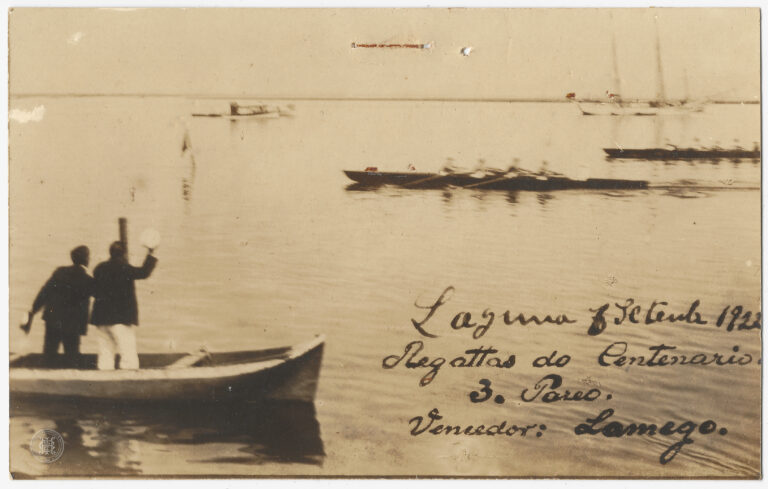 Laguna 7 Setenbr 1922
Regattas do Centenario.
3. Pareo.
Vencedor: Lamego.